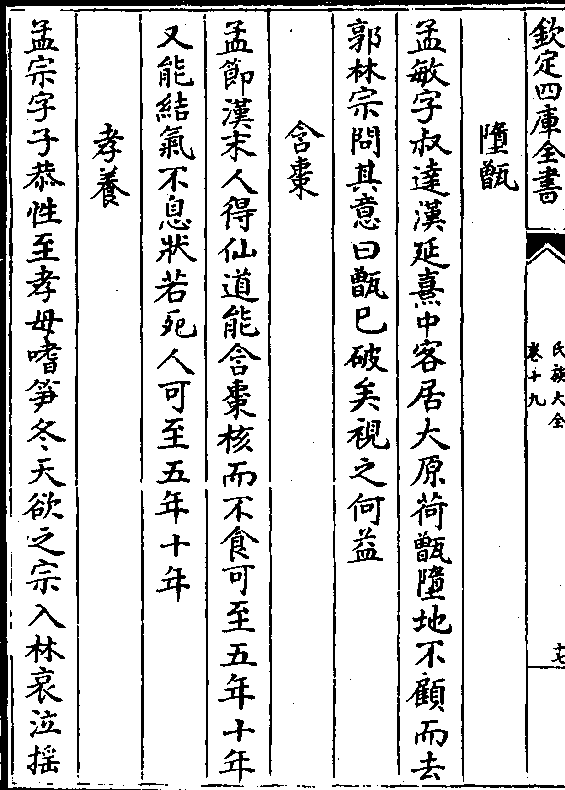 欽定四庫全書
氏族大全
卷十九
十七
墮甑
孟敏字叔達漢延熹中客居大原荷甑墮地不顧而去
郭林宗問其意曰甑已破矣視之何益
含棗
孟節漢末人得仙道能含棗核而不食可至五年十年
又能結氣不息狀若死人可至五年十年
孝養
孟宗字子恭性至孝母嗜笋冬天欲之宗入林哀泣搖